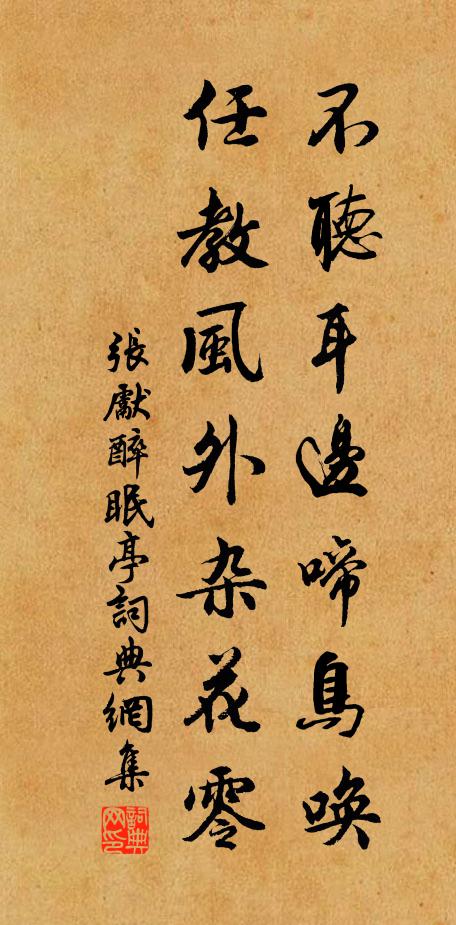 不聽耳邊啼鳥喚
任教風外杂花零
張獻醉眠亭詞典網集
詞典网印